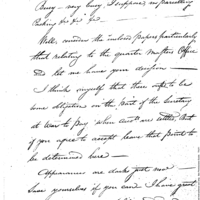 Busy - very busy, I suppose, in parcelling
Packing &c &c &c.
Well, consider the inclosed papers particularly
that relating to the quarter Masters Office
and let me have your decision -
I think myself that there ought to be
some obligation on the part of the Secretary
at War to pay when accts are settled, but if
you agree to accept leave that point to
be determined here -
Appearances are dark just now -
Save yourselves if you can. I have great